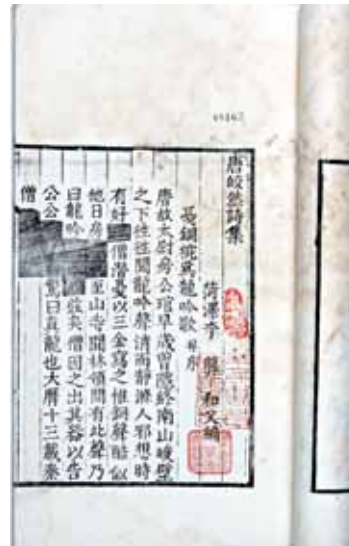 唐皎然詩集
菏澤李龏和父編
戛銅椀爲龍吟歌并序
唐故太尉房公琯早歲曾隱終南山峻壁
之下往往聞龍吟聲清而靜滌人邪想時
有好僧潛戛以三金寫之惟銅聲酷似
他日房至山寺聞林嶺間有此聲乃
曰龍吟兹矣僧因之出其器以告
公公驚曰眞龍也大曆十三載秦
僧